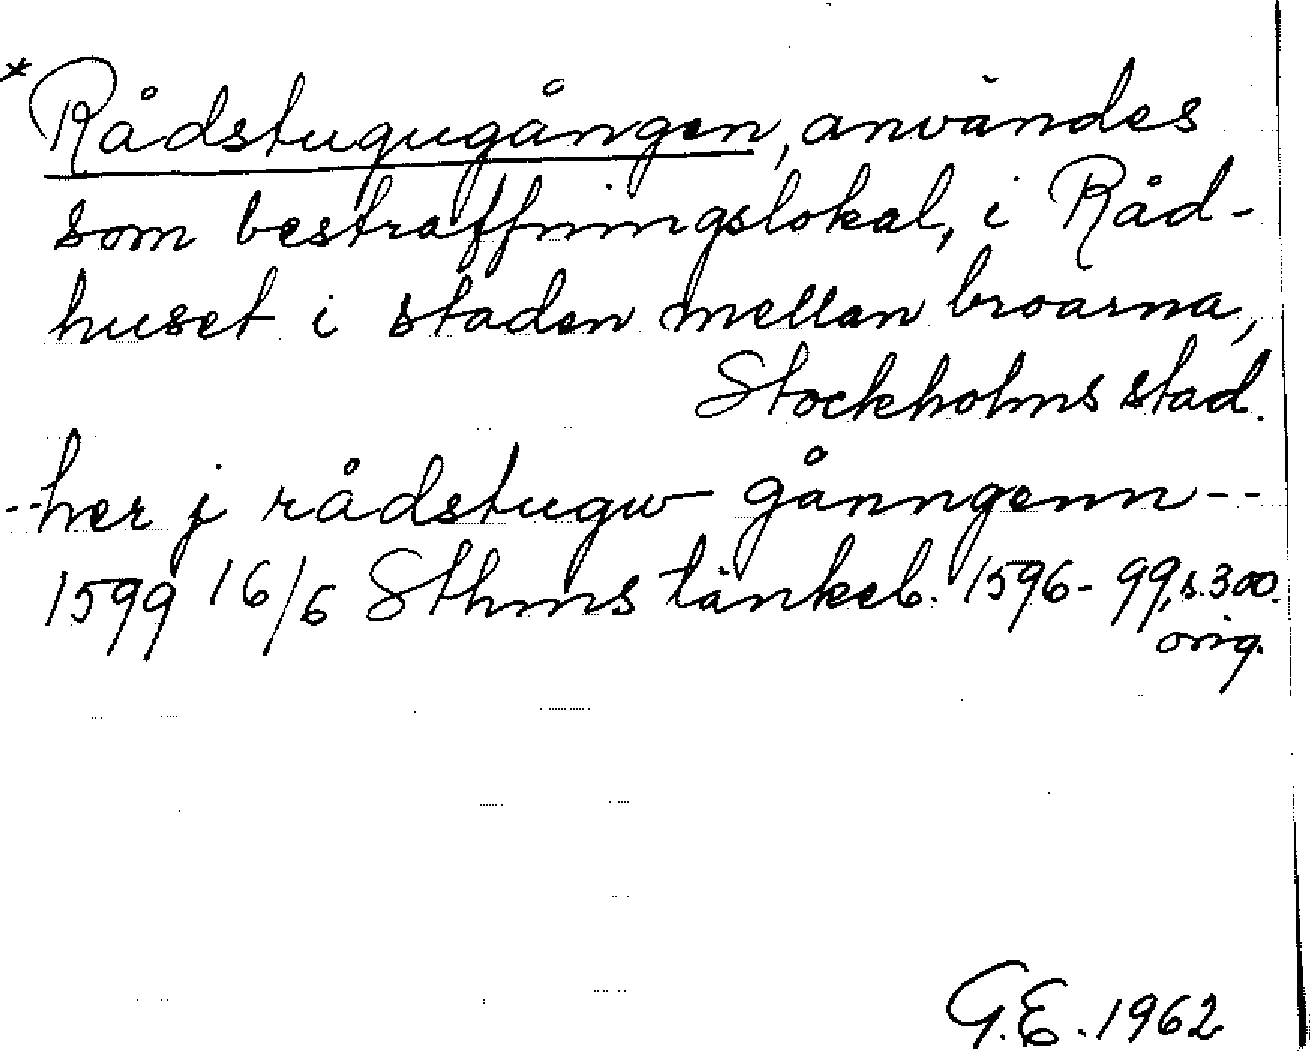 * Rådstugugången, användes
som bestraffningslokal, i Råd-
huset i staden mellan broarna,
Stockholms stad.
--her j rådstugw gånngenn--
1599 16/5 Sthms tänkeb. 1596-99, s. 300.
orig.
G.E. 1962